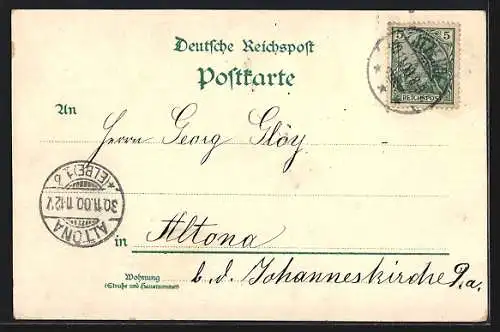 Deutsche Reichspost
Postkarte
5 5
REICHSPOST
An
Herrn Georg Glöy
ALTONA
30.11.00.11-12V
*(ELBE)1 b
in Altona
Wohnung
(Straße und Hausnummer)
b. d. Johanneskirche 9.a.